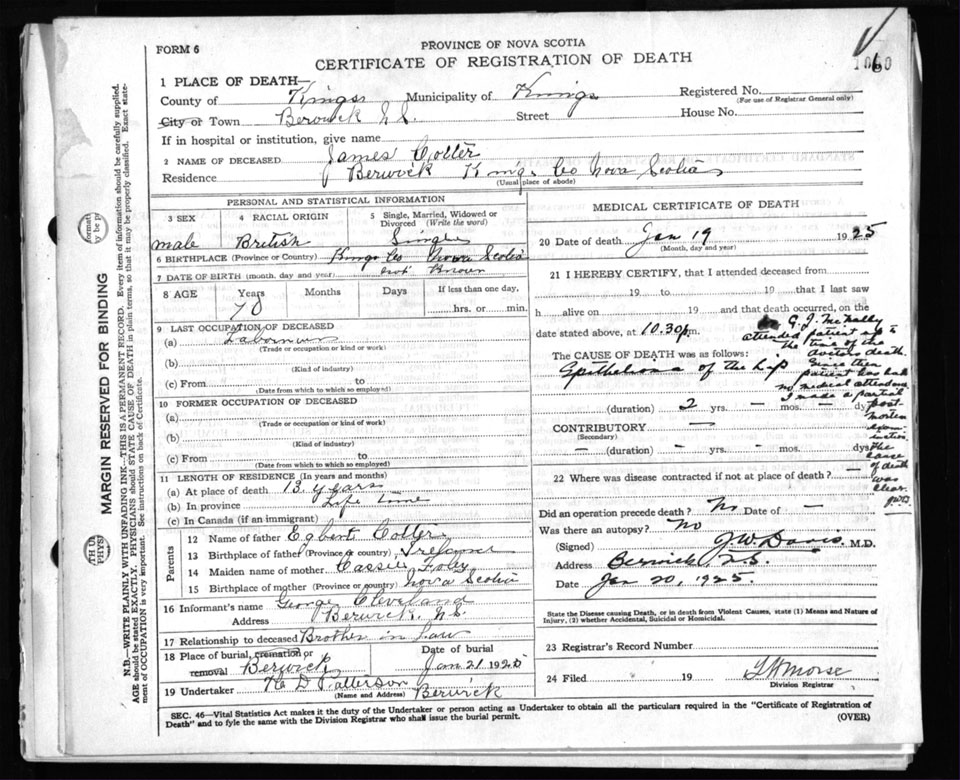 FORM 6
PROVINCE OF NOVA SCOTIA
CERTIFICATE OF REGISTRATION OF DEATH
1060
1 PLACE OF DEATH—
County of Kings Municipality of Kings Registered No.
(For use of Registrar General only)
City or Town Berwick N.S. Street House No.
If in hospital or institution, give name
2 NAME OF DECEASED James Colter
Residence Berwick Kings Co Nova Scotia
(Usual place of abode)
PERSONAL AND STATISTICAL INFORMATION
3 SEX 4 RACIAL ORIGIN 5 Single, Married, Widowed or Divorced (Write the word)
male British Single
6 BIRTHPLACE (Province or Country) Kings Co Nova Scotia
7 DATE OF BIRTH (month, day and year) not Known
8 AGE Years Months Days If less than one day,
70 hrs. or min.
9 LAST OCCUPATION OF DECEASED
(a) Laborer
(Trade or occupation or kind or work)
(b)
(Kind of industry)
(c) From to
(Date from which to which so employed)
10 FORMER OCCUPATION OF DECEASED
(a)
(Trade or occupation or kind of work)
(b)
(Kind of industry)
(c) From to
(Date from which to which so employed)
11 LENGTH OF RESIDENCE (In years and months)
(a) At place of death 13 years
(b) In province Life time
(c) In Canada (if an immigrant)
Parents
12 Name of father Egbert Colter
13 Birthplace of father (Province or country)
14 Maiden name of mother Cassie Foley
15 Birthplace of mother (Province or country) Nova Scotia
16 Informant's name George Cleveland
Address Berwick, N.S.
17 Relationship to deceased Brother in Law
18 Place of burial, cremation or removal Berwick Date of burial Jan 21 1925
19 Undertaker H D Patterson Berwick
(Name and Address)
MEDICAL CERTIFICATE OF DEATH
20 Date of death Jan 19 1925
(Month, day and year)
21 I HEREBY CERTIFY, that I attended deceased from
19 to 19 that I last saw
h alive on 19 and that death occurred, on the
date stated above, at 10.30 p.m.
G. J. McNally attended patient up to the time of the doctors death. Since then patient has had no medical attendance I made a partial post-mortem examination, The cause of death was clear. JWD
The CAUSE OF DEATH was as follows:
Epithelioma of the Lip
(duration) 2 yrs. — mos. — dys
CONTRIBUTORY —
(Secondary)
— (duration) — yrs. — mos. — dys
22 Where was disease contracted if not at place of death? —
Did an operation precede death? No Date of —
Was there an autopsy? No
(Signed) J.W. Davis. M.D.
Address Berwick, N.S.
Date Jan 20, 1925.
State the Disease causing Death, or in death from Violent Causes, state (1) Means and Nature of Injury, (2) whether Accidental, Suicidal or Homicidal.
23 Registrar's Record Number
24 Filed 19 Morse
Division Registrar
SEC. 46—Vital Statistics Act makes it the duty of the Undertaker or person acting as Undertaker to obtain all the particulars required in the "Certificate of Registration of
Death" and to fyle the same with the Division Registrar who shall issue the burial permit. (OVER)
MARGIN RESERVED FOR BINDING
N.B.—WRITE PLAINLY WITH UNFADING INK—THIS IS A PERMANENT RECORD. Every item of information should be carefully supplied.
AGE should be stated EXACTLY. PHYSICIANS should STATE CAUSE OF DEATH in plain terms, so that it may be properly classified. Exact state-
ment of OCCUPATION is very important. See instructions on back of Certificate.